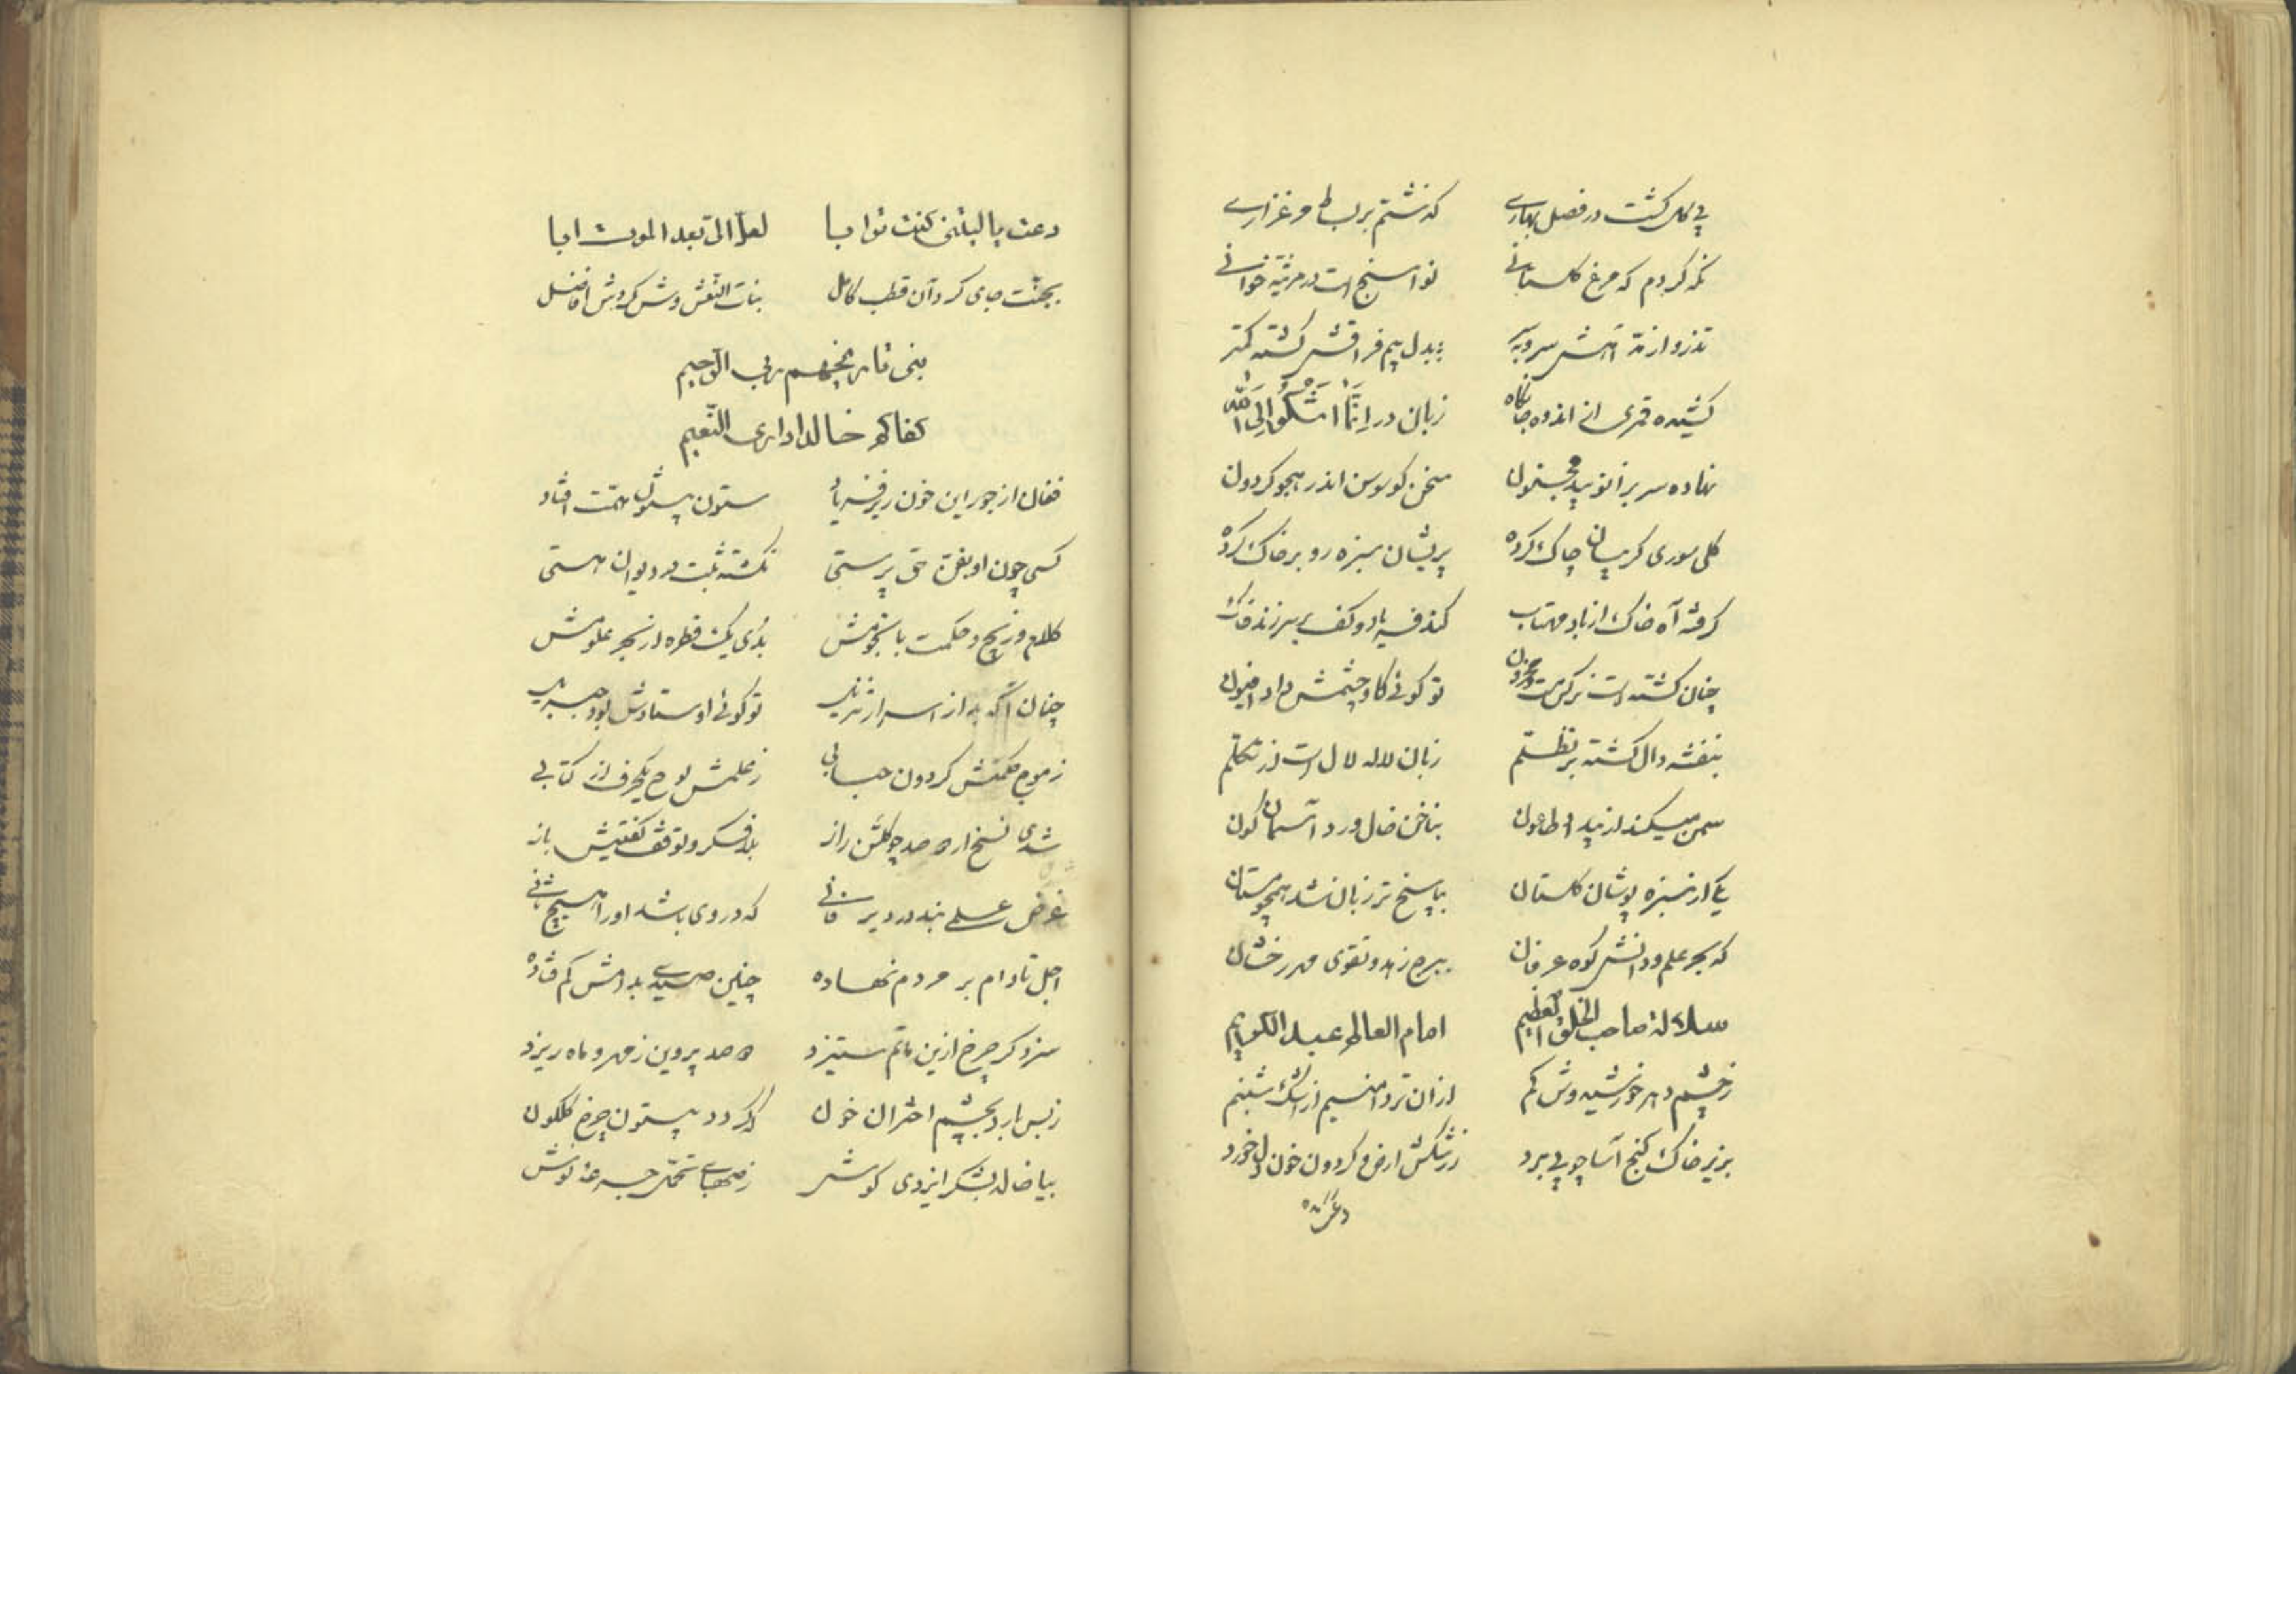 پی گل گشت در فصل بهاری گذشتم بر بساط مرغزاری
نگه کردم که مرغ گلستانی نواسنج است در مرثیه خوانی
تذرو از سر و به بدل بیم فراقش گشته کمتر
کشیده قمری از اندوه جانکاه زبان در اِنَّمَا اَشْکُوا اِلَی الله
نهاده سر بزانو بید مجنون سخن گو سوسن اندر هجو گردون
گل سوری گریبان چاک کرده پریشان سبزه رو بر خاک کرده
گرفته آه خاک از باد مهتاب کند فریاد و کف بر سر زند
چنان گشته است نرگس مست و محزون تو گوئی کاو چشمش داد افیون
بنفشه دال گشته بر تظلم زبان لاله لال است از تکلم
سمن میکند از بید اطاعون بناخن خال ورد آسمان گون
یکی از سبزه پوشان گلستان بپاسخ تر زبان شد همچو مستان
که بحر علم و دانش کوه عرفان ببرج زهد و تقوی مهر رخشان
سلالة صاحب الخلق العظیم امام العالم عبد الکریم
ز چشم دهر خورشید وش گم ازان تر دامنیم از اشک شبنم
بزیر خاک گنج آسا چو پی برد ز رشکش ارض و گردون خون دل خورد
دعت
دعت یا لیتنی کنت ترابا لعل الی بعد الموت ابا
بجنّت جای کرد آن قطب کامل بنات النعش وش گردش افاضل
بنی تاریخهم ربی الرحیم
کفاک خالدا داری النعیم
فغان از جور این خون ریز فریاد ستون بیستون همت افتاد
کسی چون او بفن حق پرستی نگشته ثبت در دیوان هستی
کلام و زیج و حکمت با نجومش بدی یک قطره از بحر علومش
چنان آگه به از اسرار تنزیل تو گوئی اوستادش بود جبریل
ز موج حکمتش گردون حبابی ز علمش لوح یکحرف از کتابی
شدی نسخ ار دو صد چو گلشن راز بلا فکر و توقف گفتیش باز
غرض علمی نبد در دیر فانی که در وی باشد او را هیچ ثانی
اجل تا دام بر مردم نهاده چنین صیدی بدامش کم فتاده
سزد گر چرخ ازین ماتم ستیزد دو صد پروین ز مهر و ماه ریزد
ز بس بارد بچشم اختران خون که گردد بیستون چرخ گلگون
بیا خالد بشکر ایزدی کوش ز صهبای تحمل جرعه نوش